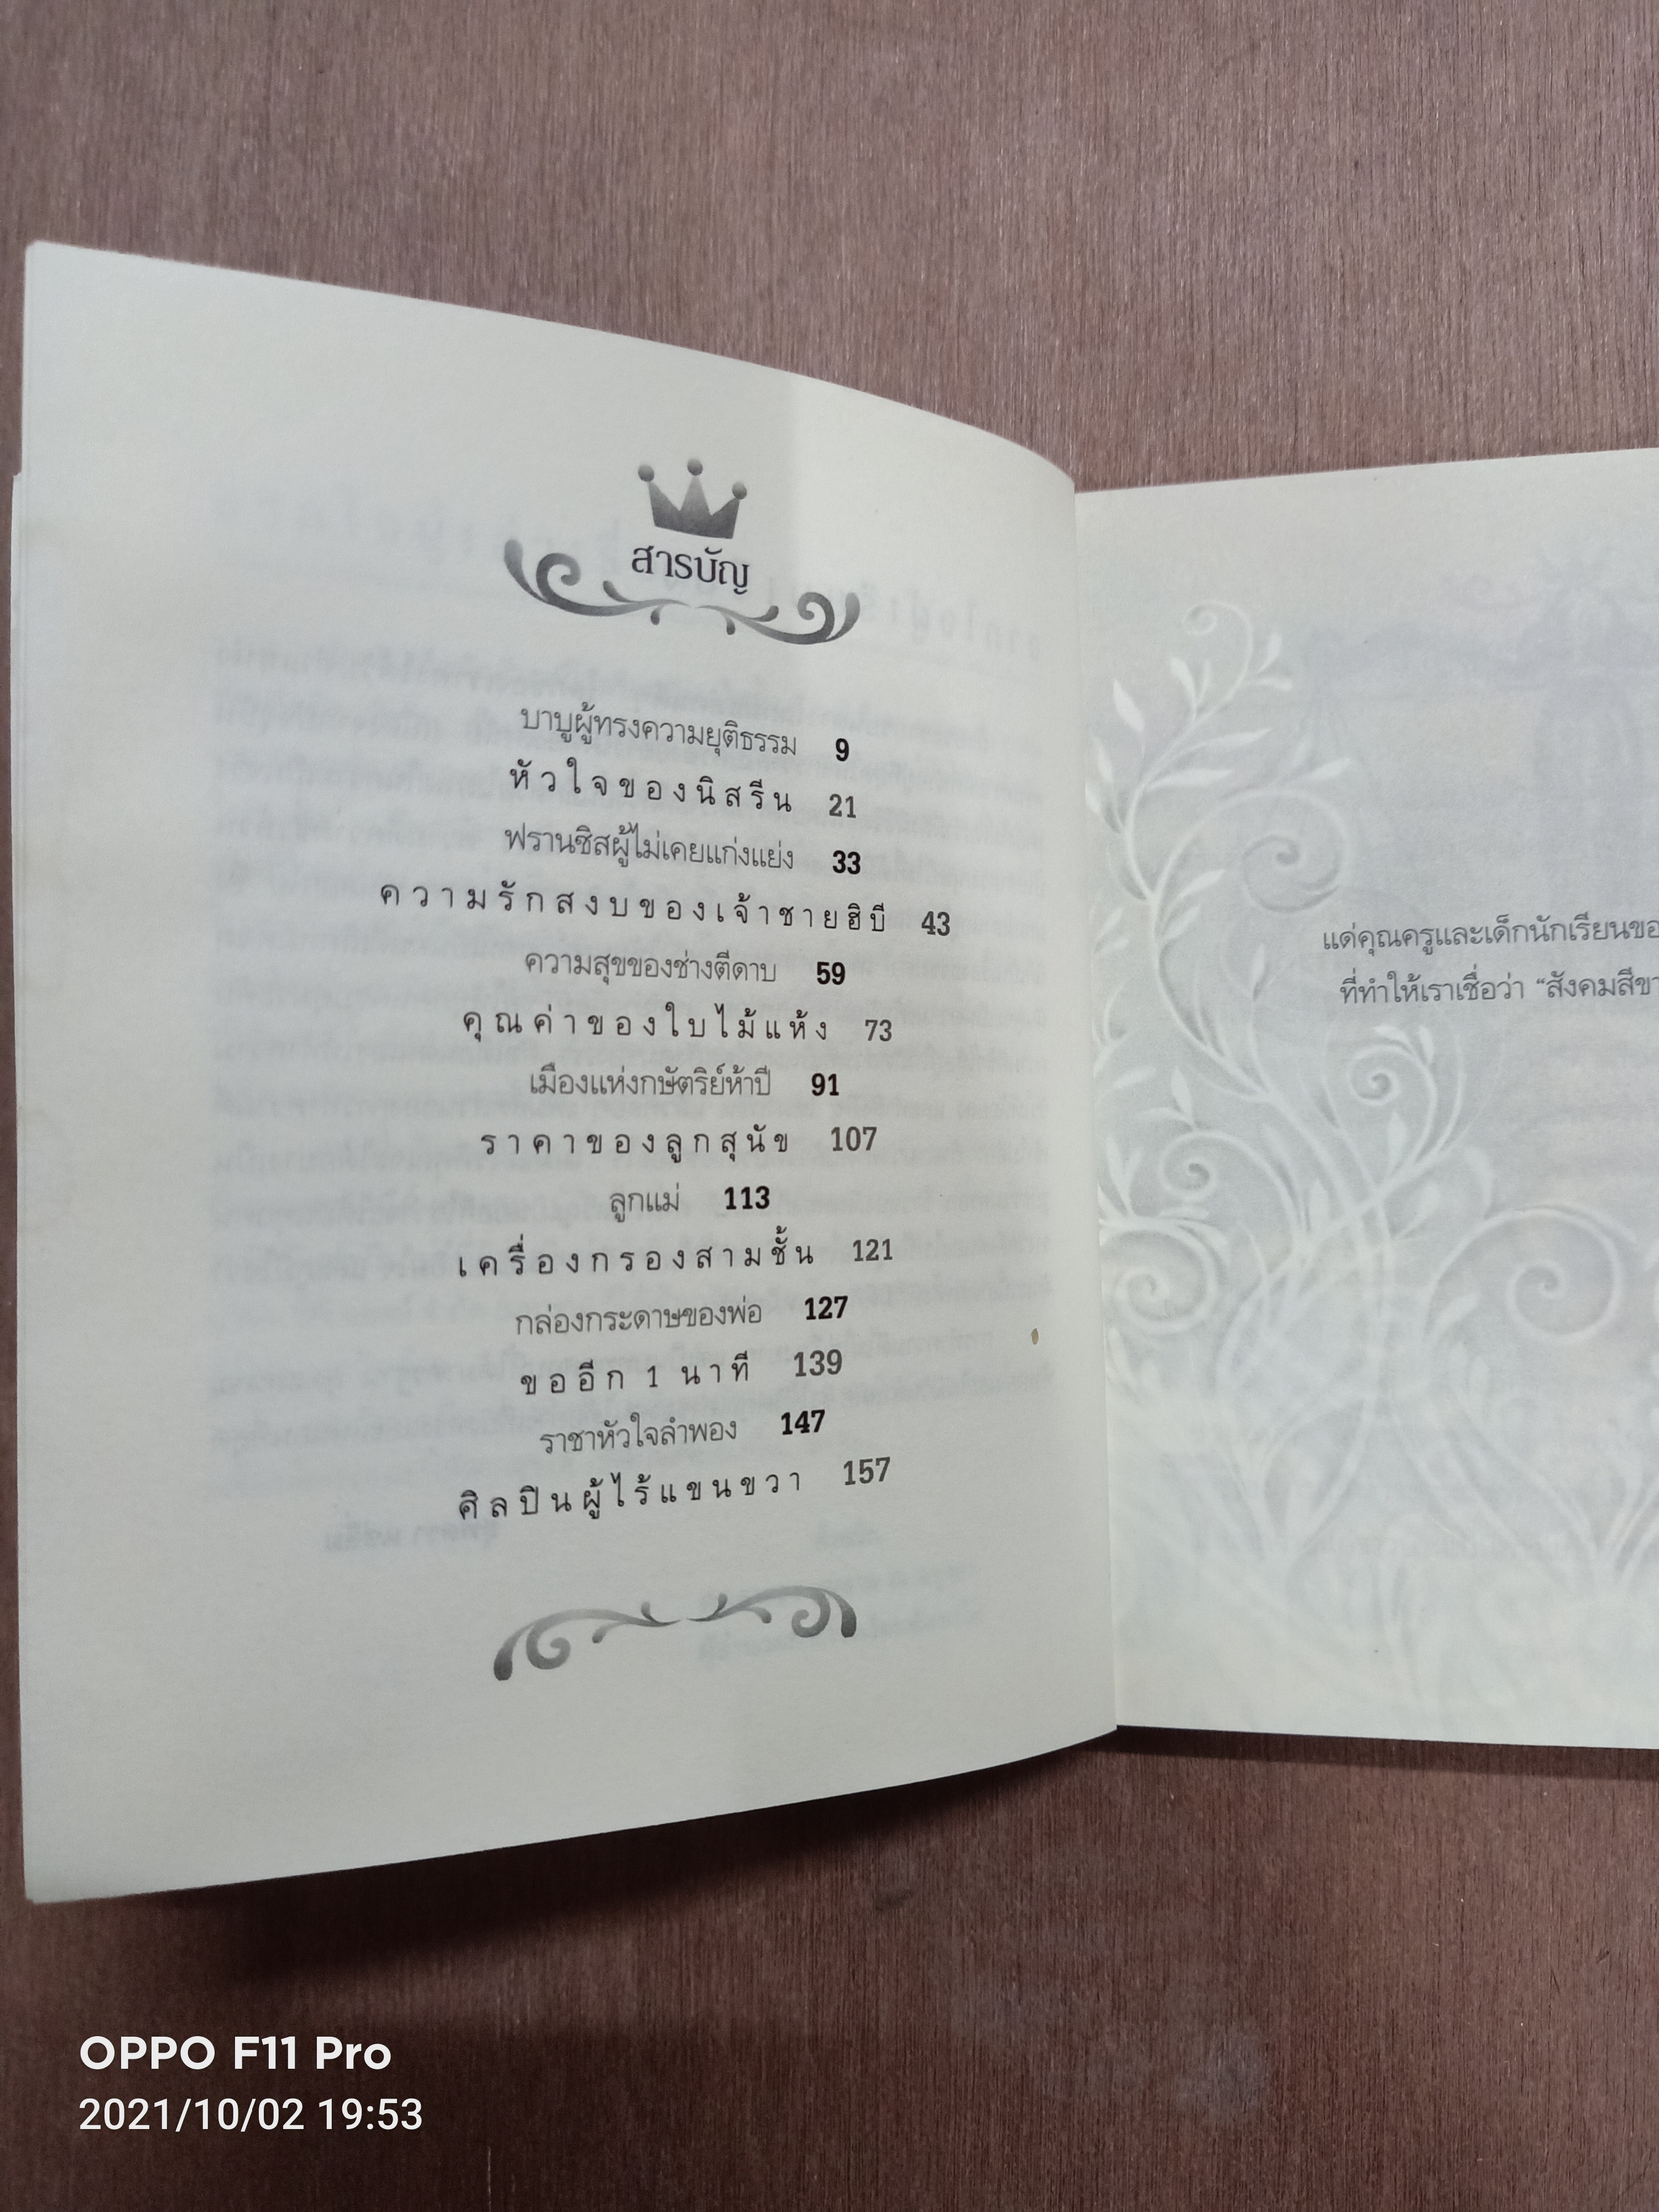 สารบัญ
บาบูผู้ทรงความยุติธรรม 9
หัวใจของนิสรีน 21
ฟรานซิสผู้ไม่เคยแก่งแย่ง 33
ความรักสงบของเจ้าชายฮิบี 43
ความสุขของช่างตีดาบ 59
คุณค่าของใบไม้แห้ง 73
เมืองแห่งกษัตริย์ห้าปี 91
ราคาของลูกสุนัข 107
ลูกแม่ 113
เครื่องกรองสามชั้น 121
กล่องกระดาษของพ่อ 127
ขออีก 1 นาที 139
ราชาหัวใจลำพอง 147
ศิลปินผู้ไร้แขนขวา 157
แด่คุณครูและเด็กนักเรียนขอ
ที่ทำให้เราเชื่อว่า “สังคมสีขา
OPPO F11 Pro
2021/10/02 19:53